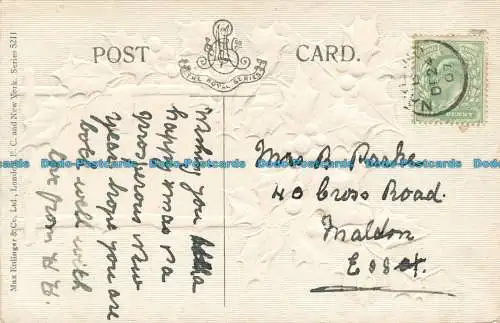 POST CARD.
THE ROYAL SERIES
Max Ettlinger & Co., Ltd., London, E.C. and New York. Series 5211
Wishing you
happy xmas & a
prosperous New
year hope you are
both well with
love from
Mrs B Parke
40 Cross Road.
Maldon
Essex.
MALDON
DE 24
07
PENNY
Dodo-Postcards Dodo-Postcards Dodo-Postcards Dodo-Postcards Dodo-Postcards Dodo-Postcards